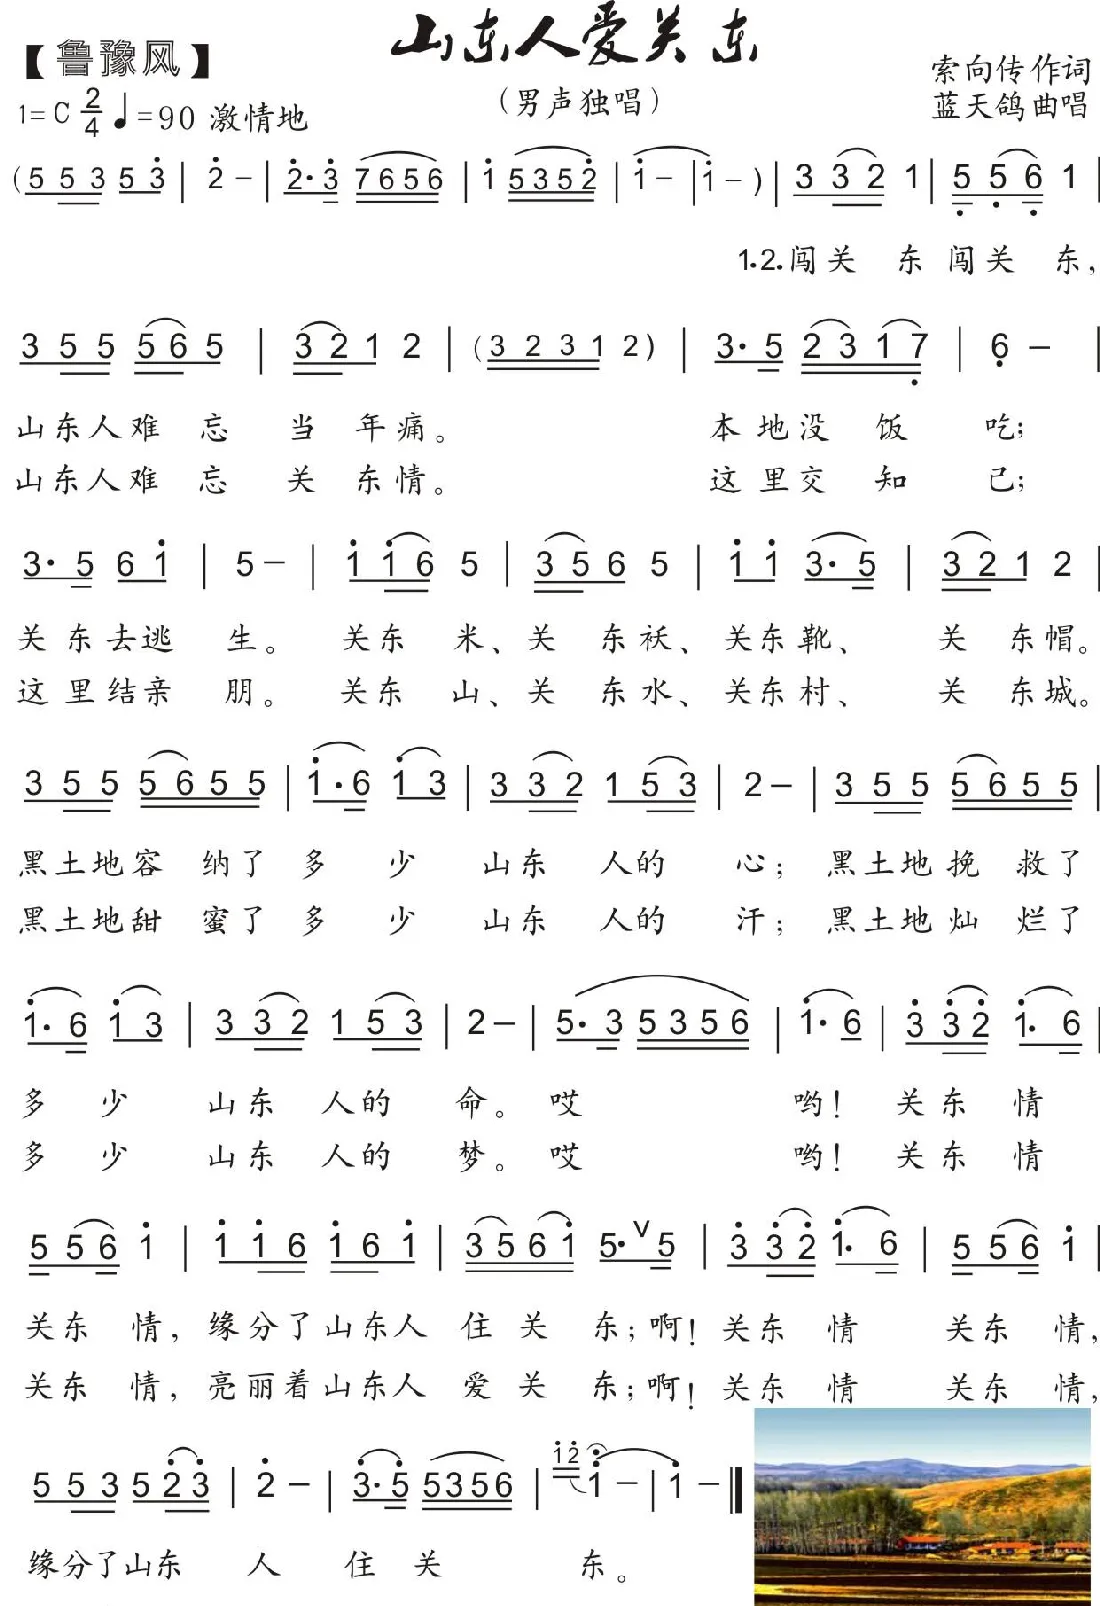 山东人爱关东
【鲁豫风】
(男声独唱)
索向传作词
1=C 2/4 ♩=90 激情地
蓝天鸽曲唱
(5 5 3 5 3̇ | 2̇ - | 2̇· 3̇ 7 6 5 6 | 1̇ 5 3 5 2̇ | 1̇ - | 1̇ - ) | 3 3 2 1 | 5̣ 5̣ 6̣ 1 |
1.2.闯关 东 闯关 东,
3 5 5 5 6 5 | 3 2 1 2 | (3 2 3 1 2) | 3· 5 2 3 1 7̣ | 6̣ - |
山东人难 忘 当 年痛。 本地没 饭 吃;
山东人难 忘 关 东情。 这里交 知 己;
3· 5 6 1̇ | 5 - | 1̇ 1̇ 6 5 | 3 5 6 5 | 1̇ 1̇ 3· 5 | 3 2 1 2 |
关东去逃 生。 关东 米、关 东袄、关东靴、 关 东帽。
这里结亲 朋。 关东 山、关 东水、关东村、 关 东城。
3 5 5 5 6 5 5 | 1̇· 6 1̇ 3 | 3 3 2 1 5 3 | 2 - | 3 5 5 5 6 5 5 |
黑土地容 纳了 多 少 山东 人的 心; 黑土地挽 救了
黑土地甜 蜜了 多 少 山东 人的 汗; 黑土地灿 烂了
1̇· 6 1̇ 3 | 3 3 2 1 5 3 | 2 - | 5· 3 5 3 5 6 | 1̇· 6 | 3̇ 3̇ 2̇ 1̇· 6 |
多 少 山东 人的 命。哎 哟! 关东 情
多 少 山东 人的 梦。哎 哟! 关东 情
5 5 6 1̇ | 1̇ 1̇ 6 1̇ 6 1̇ | 3 5 6 1̇ 5· ∨ 5 | 3̇ 3̇ 2̇ 1̇· 6 | 5 5 6 1̇ |
关东 情, 缘分了山东人 住 关 东;啊! 关东 情 关东 情,
关东 情, 亮丽着山东人 爱 关 东;啊! 关东 情 关东 情,
5 5 3 5 2̇ 3̇ | 2̇ - | 3̇· 5̇ 5 3 5 6 | 1̇ 2̇ 1̇ - | 1̇ - ‖
缘分了山东 人 住 关 东。